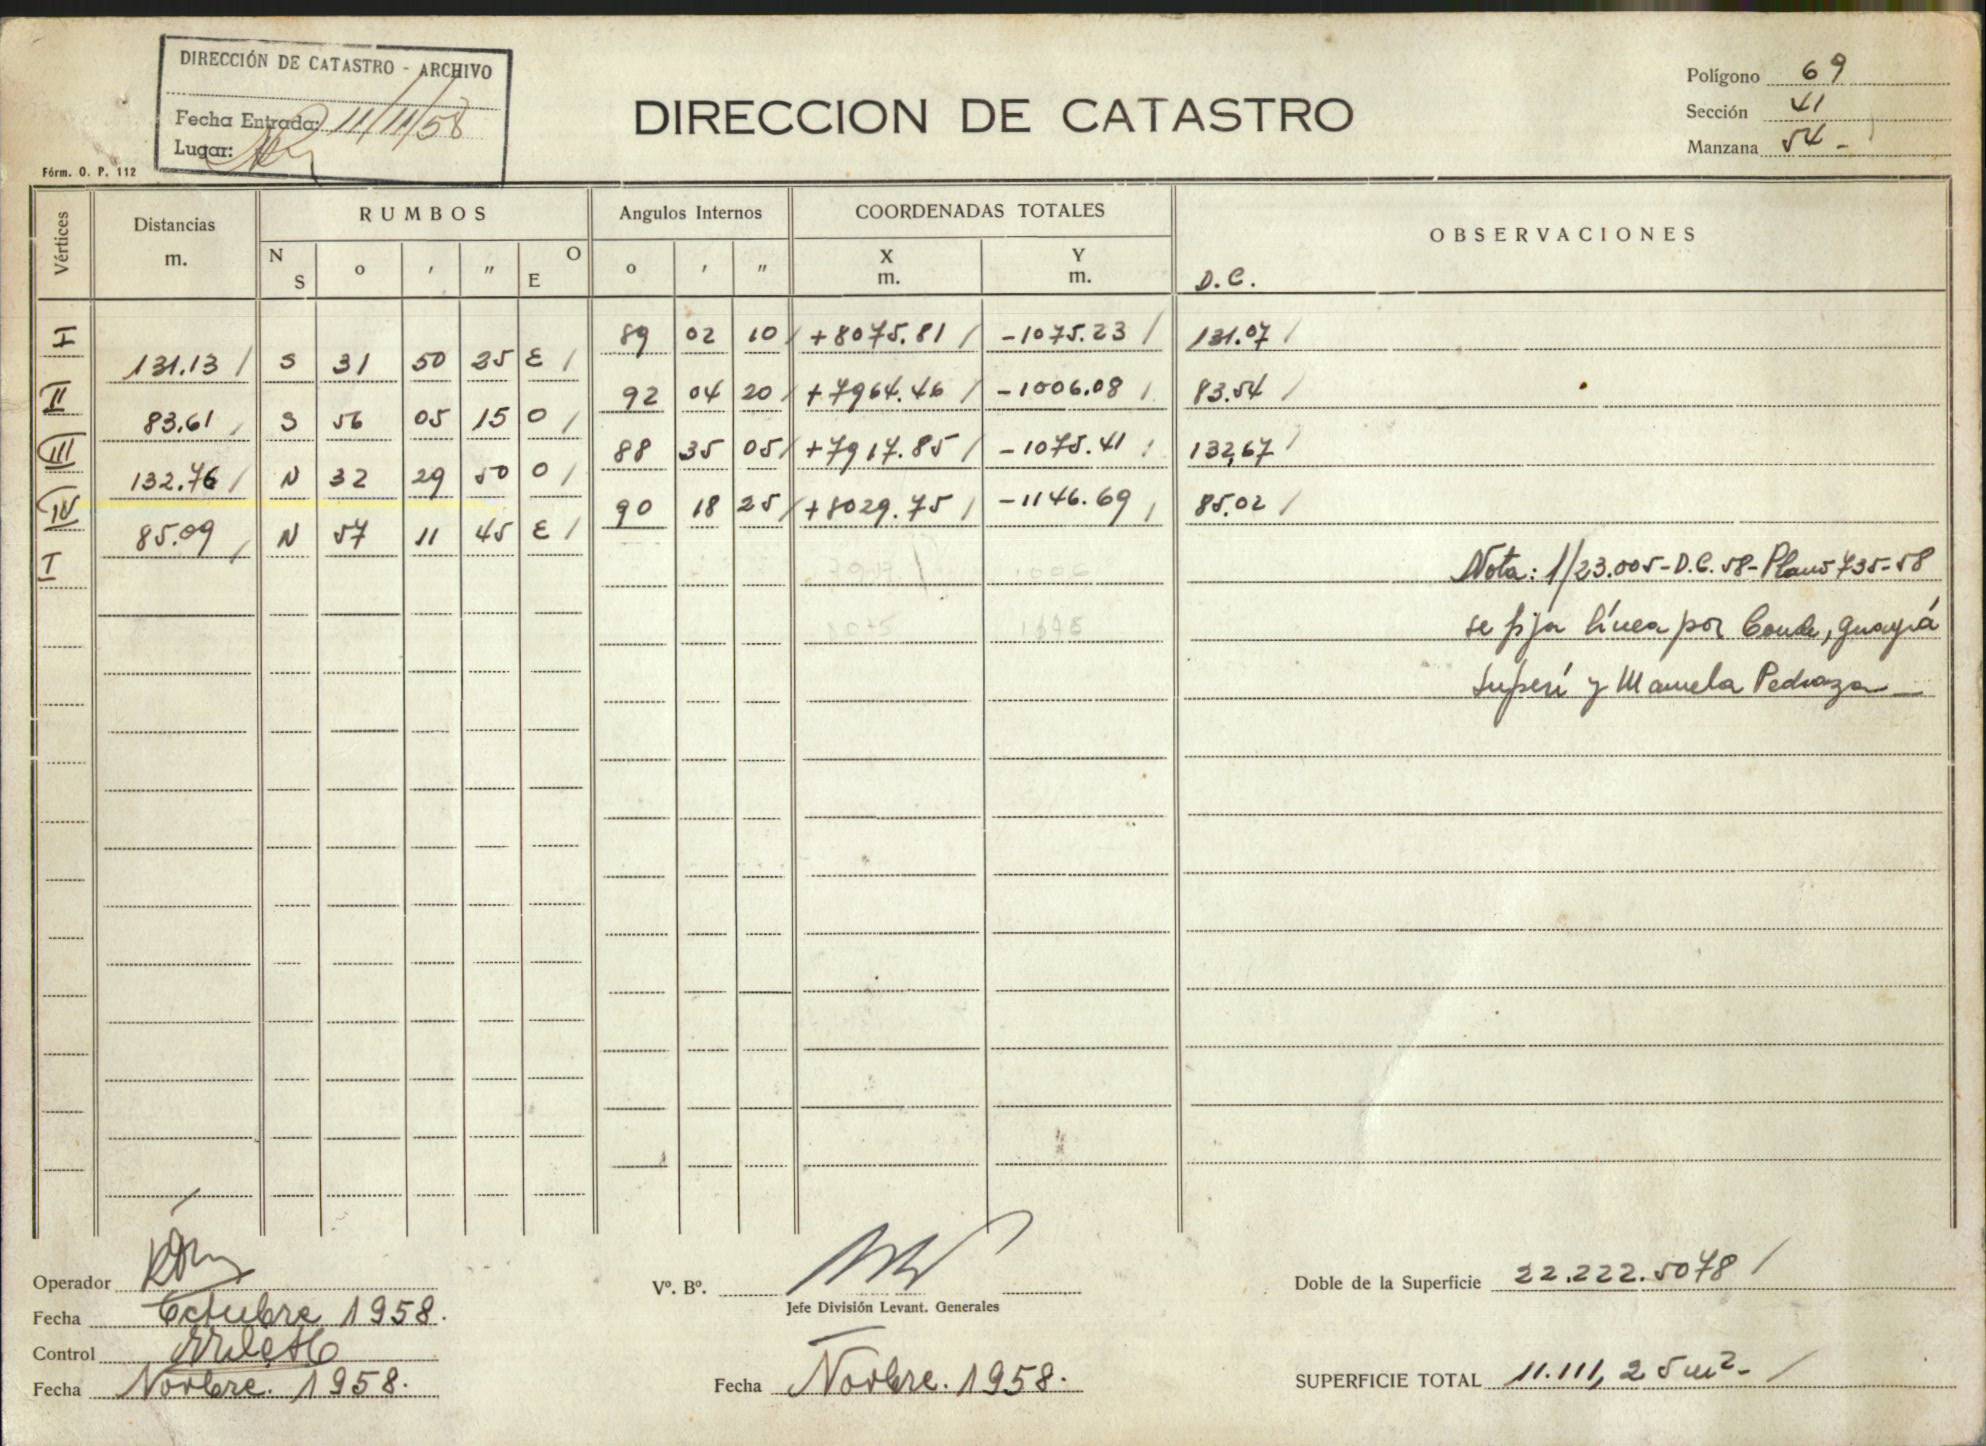 DIRECCIÓN DE CATASTRO - ARCHIVO
Fecha Entrada: 11/11/58
Lugar:
Fórm. O. P. 112
DIRECCION DE CATASTRO
Polígono 69
Sección 41
Manzana 54 -
Vértices Distancias m. RUMBOS N S o ' " E O Angulos Internos o ' " COORDENADAS TOTALES X m. Y m. OBSERVACIONES
D.C.
I 89 02 10 / +8075.81 / -1075.23 / 131.07 /
131.13 / S 31 50 35 E /
II 92 04 20 / +7964.46 / -1006.08 / 83.54 /
83.61 / S 56 05 15 O /
III 88 35 05 / +7917.85 / -1075.41 / 132,67 /
132.76 / N 32 29 50 O /
IV 90 18 25 / +8029.75 / -1146.69 / 85.02 /
85.09 / N 57 11 45 E /
I
Nota: 1/23.005-D.C.58-Plano 735-58
se fija línea por Conde, Guayrá
Superí y Manuela Pedraza
Operador
Fecha Octubre 1958.
Control
Fecha Novbre. 1958.
Vº. Bº.
Jefe División Levant. Generales
Fecha Novbre. 1958.
Doble de la Superficie 22.222.5078 /
SUPERFICIE TOTAL 11.111,25 m2- /